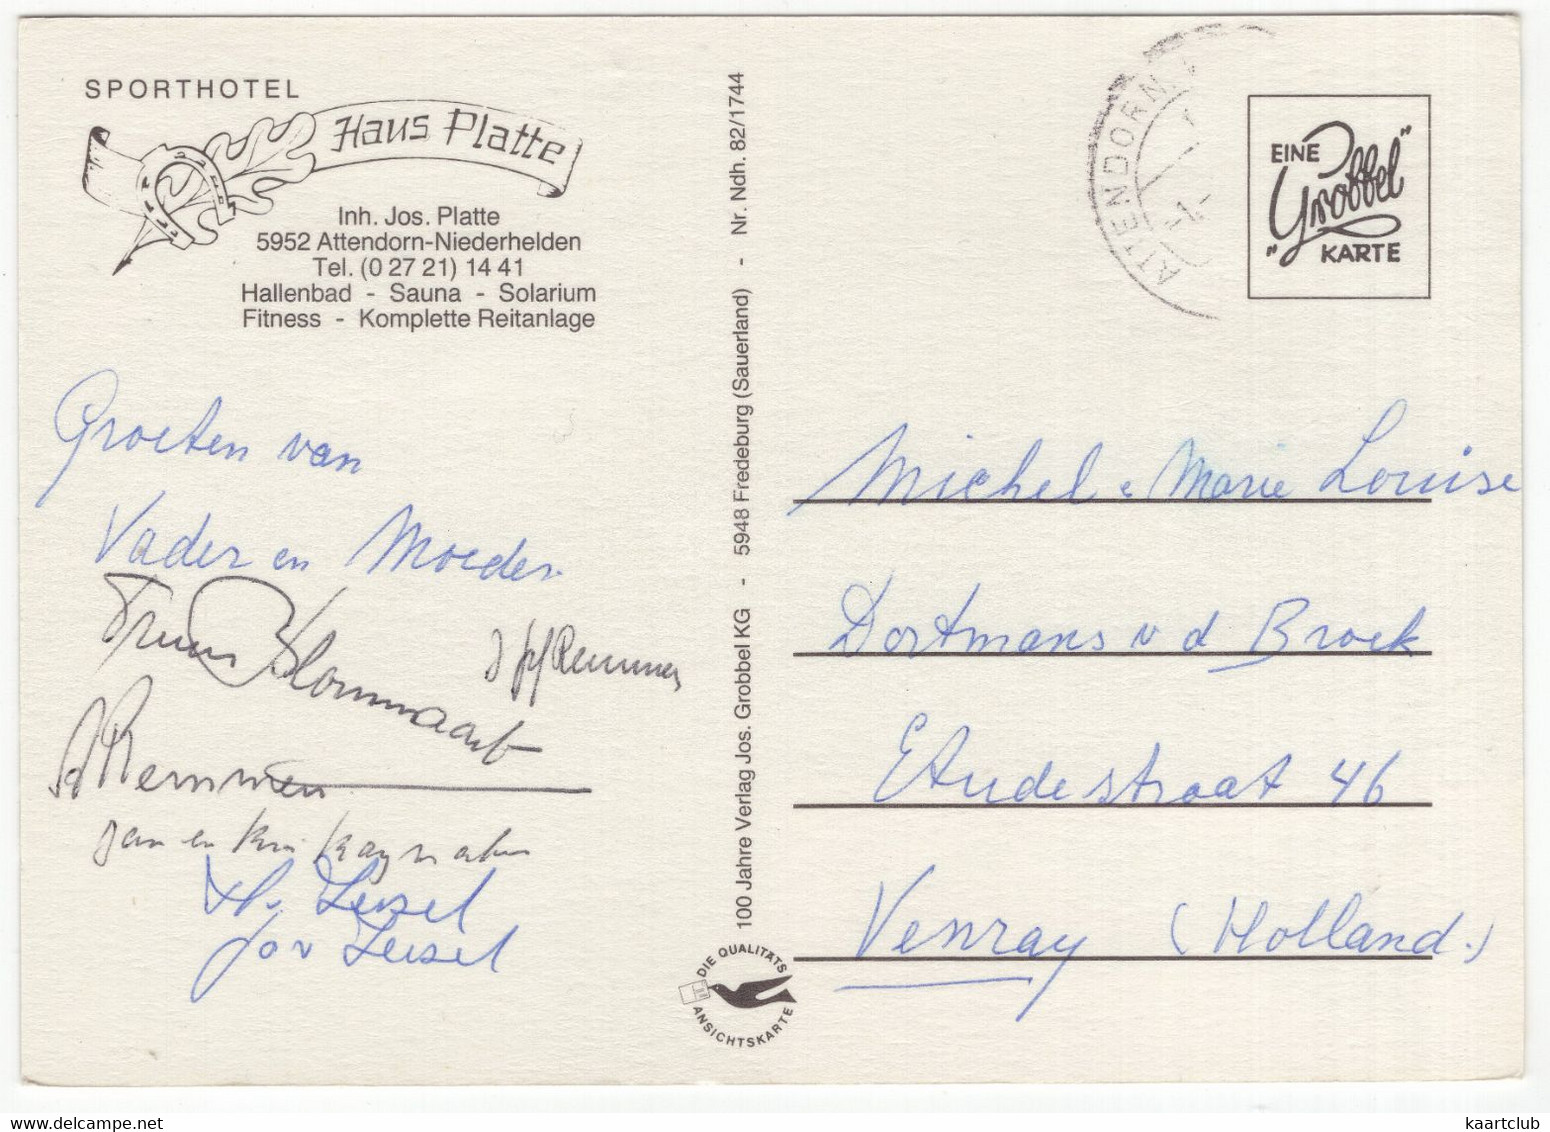 SPORTHOTEL
Haus Platte
Inh. Jos. Platte
5952 Attendorn-Niederhelden
Tel. (0 27 21) 14 41
Hallenbad - Sauna - Solarium
Fitness - Komplette Reitanlage
Groeten van
Vader en Moeder.
Truus Blommaart
Remmen
Remmen
Jan en
Leisel
Jo v Leisel
100 Jahre Verlag Jos. Grobbel KG - 5948 Fredeburg (Sauerland) - Nr. Ndh. 82/1744
DIE QUALITÄTS
ANSICHTSKARTE
ATTENDORN
EINE
„Grobbel"
KARTE
Michel e Marie Louise
Dortmans v d Broek
Etudestraat 46
Venray (Holland.)
kaartclub